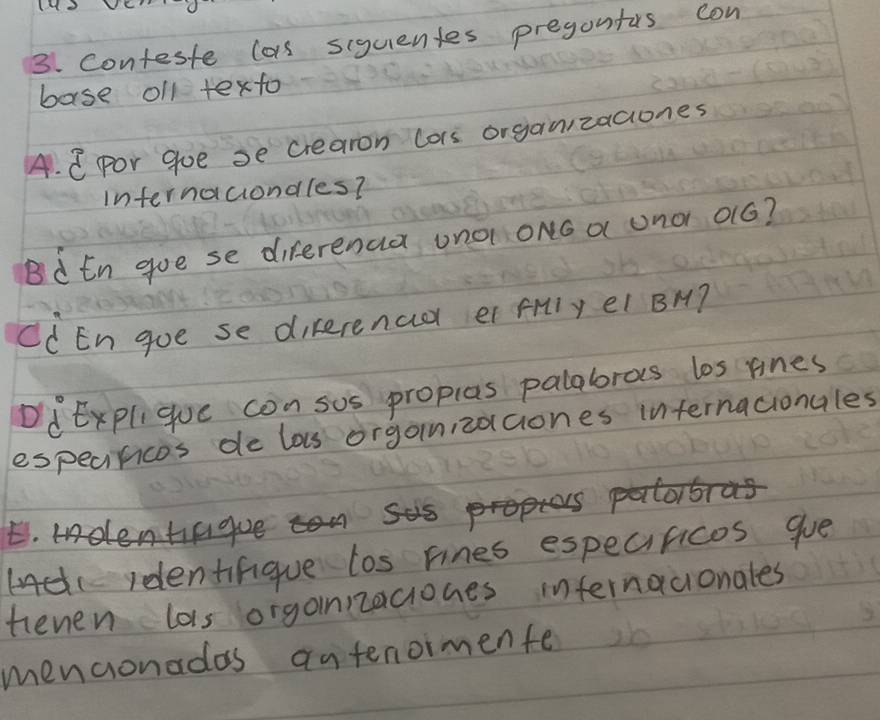 3. Conteste las siguientes pregontas con
base all texto
A. ¿ por que se crearon las organizaciones
internacionales?
B ¿ En que se diferencia una ONG a una OIG?
C ¿ En que se diferencia el FMI y el BM?
D ¿ Explique con sus propias palabras los fines
especificos de las organizaciones internacionales
E. Indentifique con sus propias palabras
Indi identifique los fines especificos que
tienen las organizaciones internacionales
mencionadas anteriormente